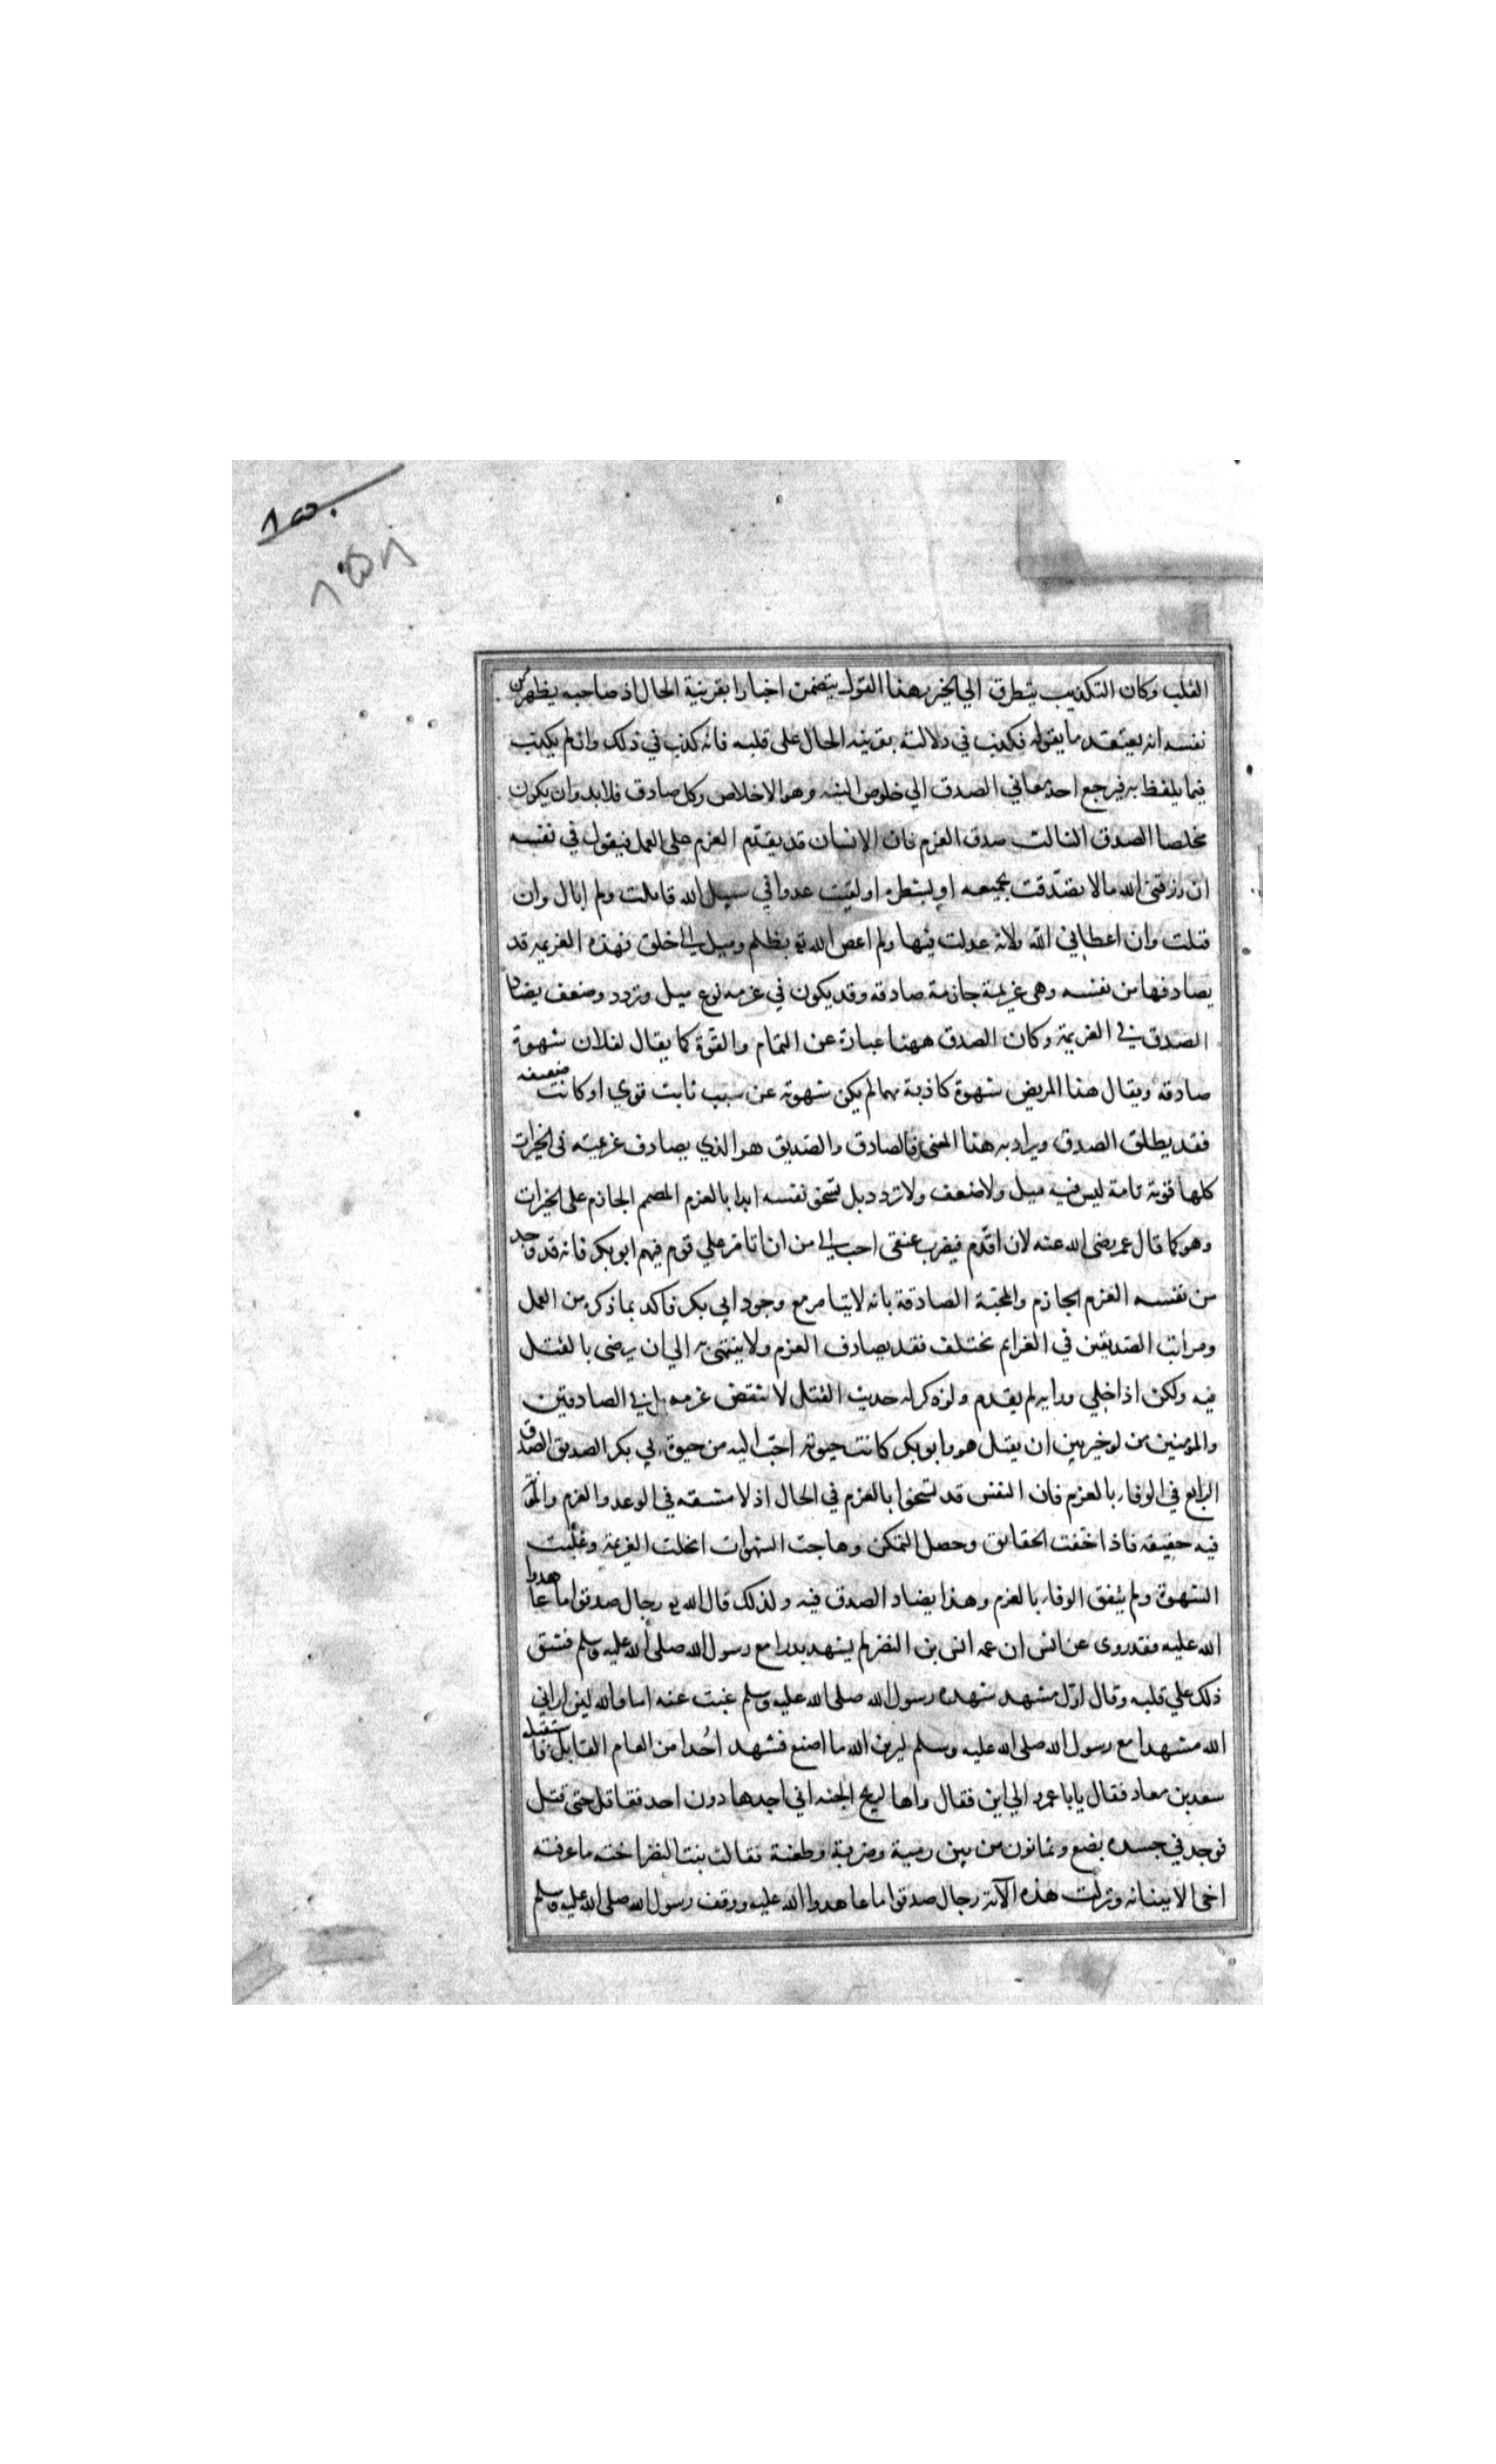 ٨٥٠
٨٥٠٦
القلب وكان التكذيب يتطرق الي الخبر وهذا القول يتضمن اخبارا بقرينة الحال اذ صاحبه يظهر من
نفسه انه يعتقد ما يقوله فكذب في دلالته بقرينه الحال على قلبه فانه كذب في ذلك وان لم يكذب
فيما يلفظ به فيرجع احد معاني الصدق الي خلوص النيه وهو الاخلاص وكل صادق فلابد وان يكون
مخلصا الصدق الثالث صدق العزم فان الانسان قد يقدّم العزم على العمل فيقول في نفسه
ان رزقني الله مالا تصدّقت بجميعه او بشطره او لقيت عدوا في سبيل الله قاتلت ولم ابال وان
قتلت وان اعطاني الله ولاية عدلت فيها ولم اعص الله تع بظلم وميل الى خلق فهذه العزيمه قد
يصادفها من نفسه وهي عزيمة جازمة صادقه وقد يكون في عزمه نوع ميل وتردد وضعف يضاد
الصدق في العزيمة وكان الصدق ههنا عبارة عن التمام والقوة كما يقال لفلان شهوة
صادقه ويقال هذا المريض شهوة كاذبة مهما لم يكن شهوته عن سبب ثابت قوي او كانت ضعيفه
فقد يطلق الصدق ويراد به هذا المعنى فالصادق والصّديق هو الذي يصادف عزيمته في الخيرات
كلها قوية تامة ليس فيه ميل ولا ضعف ولا تردد بل تسخو نفسه ابدا بالعزم المصمم الجازم على الخيرات
وهو كما قال عمر رضى الله عنه لان اقدّم فيضرب عنقى احب الي من ان اتامر علي قوم فيهم ابو بكر فانه قد وجد
من نفسه العزم الجازم والمحبّة الصادقة بانه لا يتامر مع وجود ابي بكر فاكد بما ذكره من العمل
ومراتب الصّديقين في العزايم تختلف فقد يصادف العزم ولا ينتهى به الي ان يرضى بالقتل
فيه ولكن اذا خلي ورايه لم يقدم ولو ذكر له حديث القتل لا نتقض عزمه بل في الصادقين
والمؤمنين من لو خير بين ان يقتل هو وابو بكر كانت حيوته احبّ اليه من حيوة ابي بكر الصديق الصدق
الرابع في الوفاء بالعزم فان النفس قد تسخوا بالعزم في الحال اذ لا مشقه في الوعد والعزم والمؤنة
فيه خفيفه فاذا حقت الحقائق وحصل التمكن وهاجت الشهوات انحلت العزيمة وغلبت
الشهوة ولم يتفق الوفاء بالعزم وهذا يضاد الصدق فيه ولذلك قال الله تع رجال صدقوا ما عاهدوا
الله عليه فقد روى عن انس ان عمه انس بن النضر لم يشهد بدرا مع رسول الله صلى الله عليه وسلم فشق
ذلك علي قلبه وقال اوّل مشهد شهده رسول الله صلى الله عليه وسلم غبت عنه اما والله لئن اراني
الله مشهدا مع رسول الله صلى الله عليه وسلم ليرين الله ما اصنع فشهد اُحدا من العام القابل فاستقبله
سعد بن معاد فقال يا با عمرو الي اين فقال واها لريح الجنه اني اجدها دون احد فقاتل حتى قتل
فوجد في جسده بضع وثمانون من بين رمية وضربة وطعنة فقالت بنت النضر اخته ما عرفته
اخى الا ببنانه ونزلت هذه الآية رجال صدقوا ما عاهدوا الله عليه ووقف رسول الله صلى الله عليه وسلم